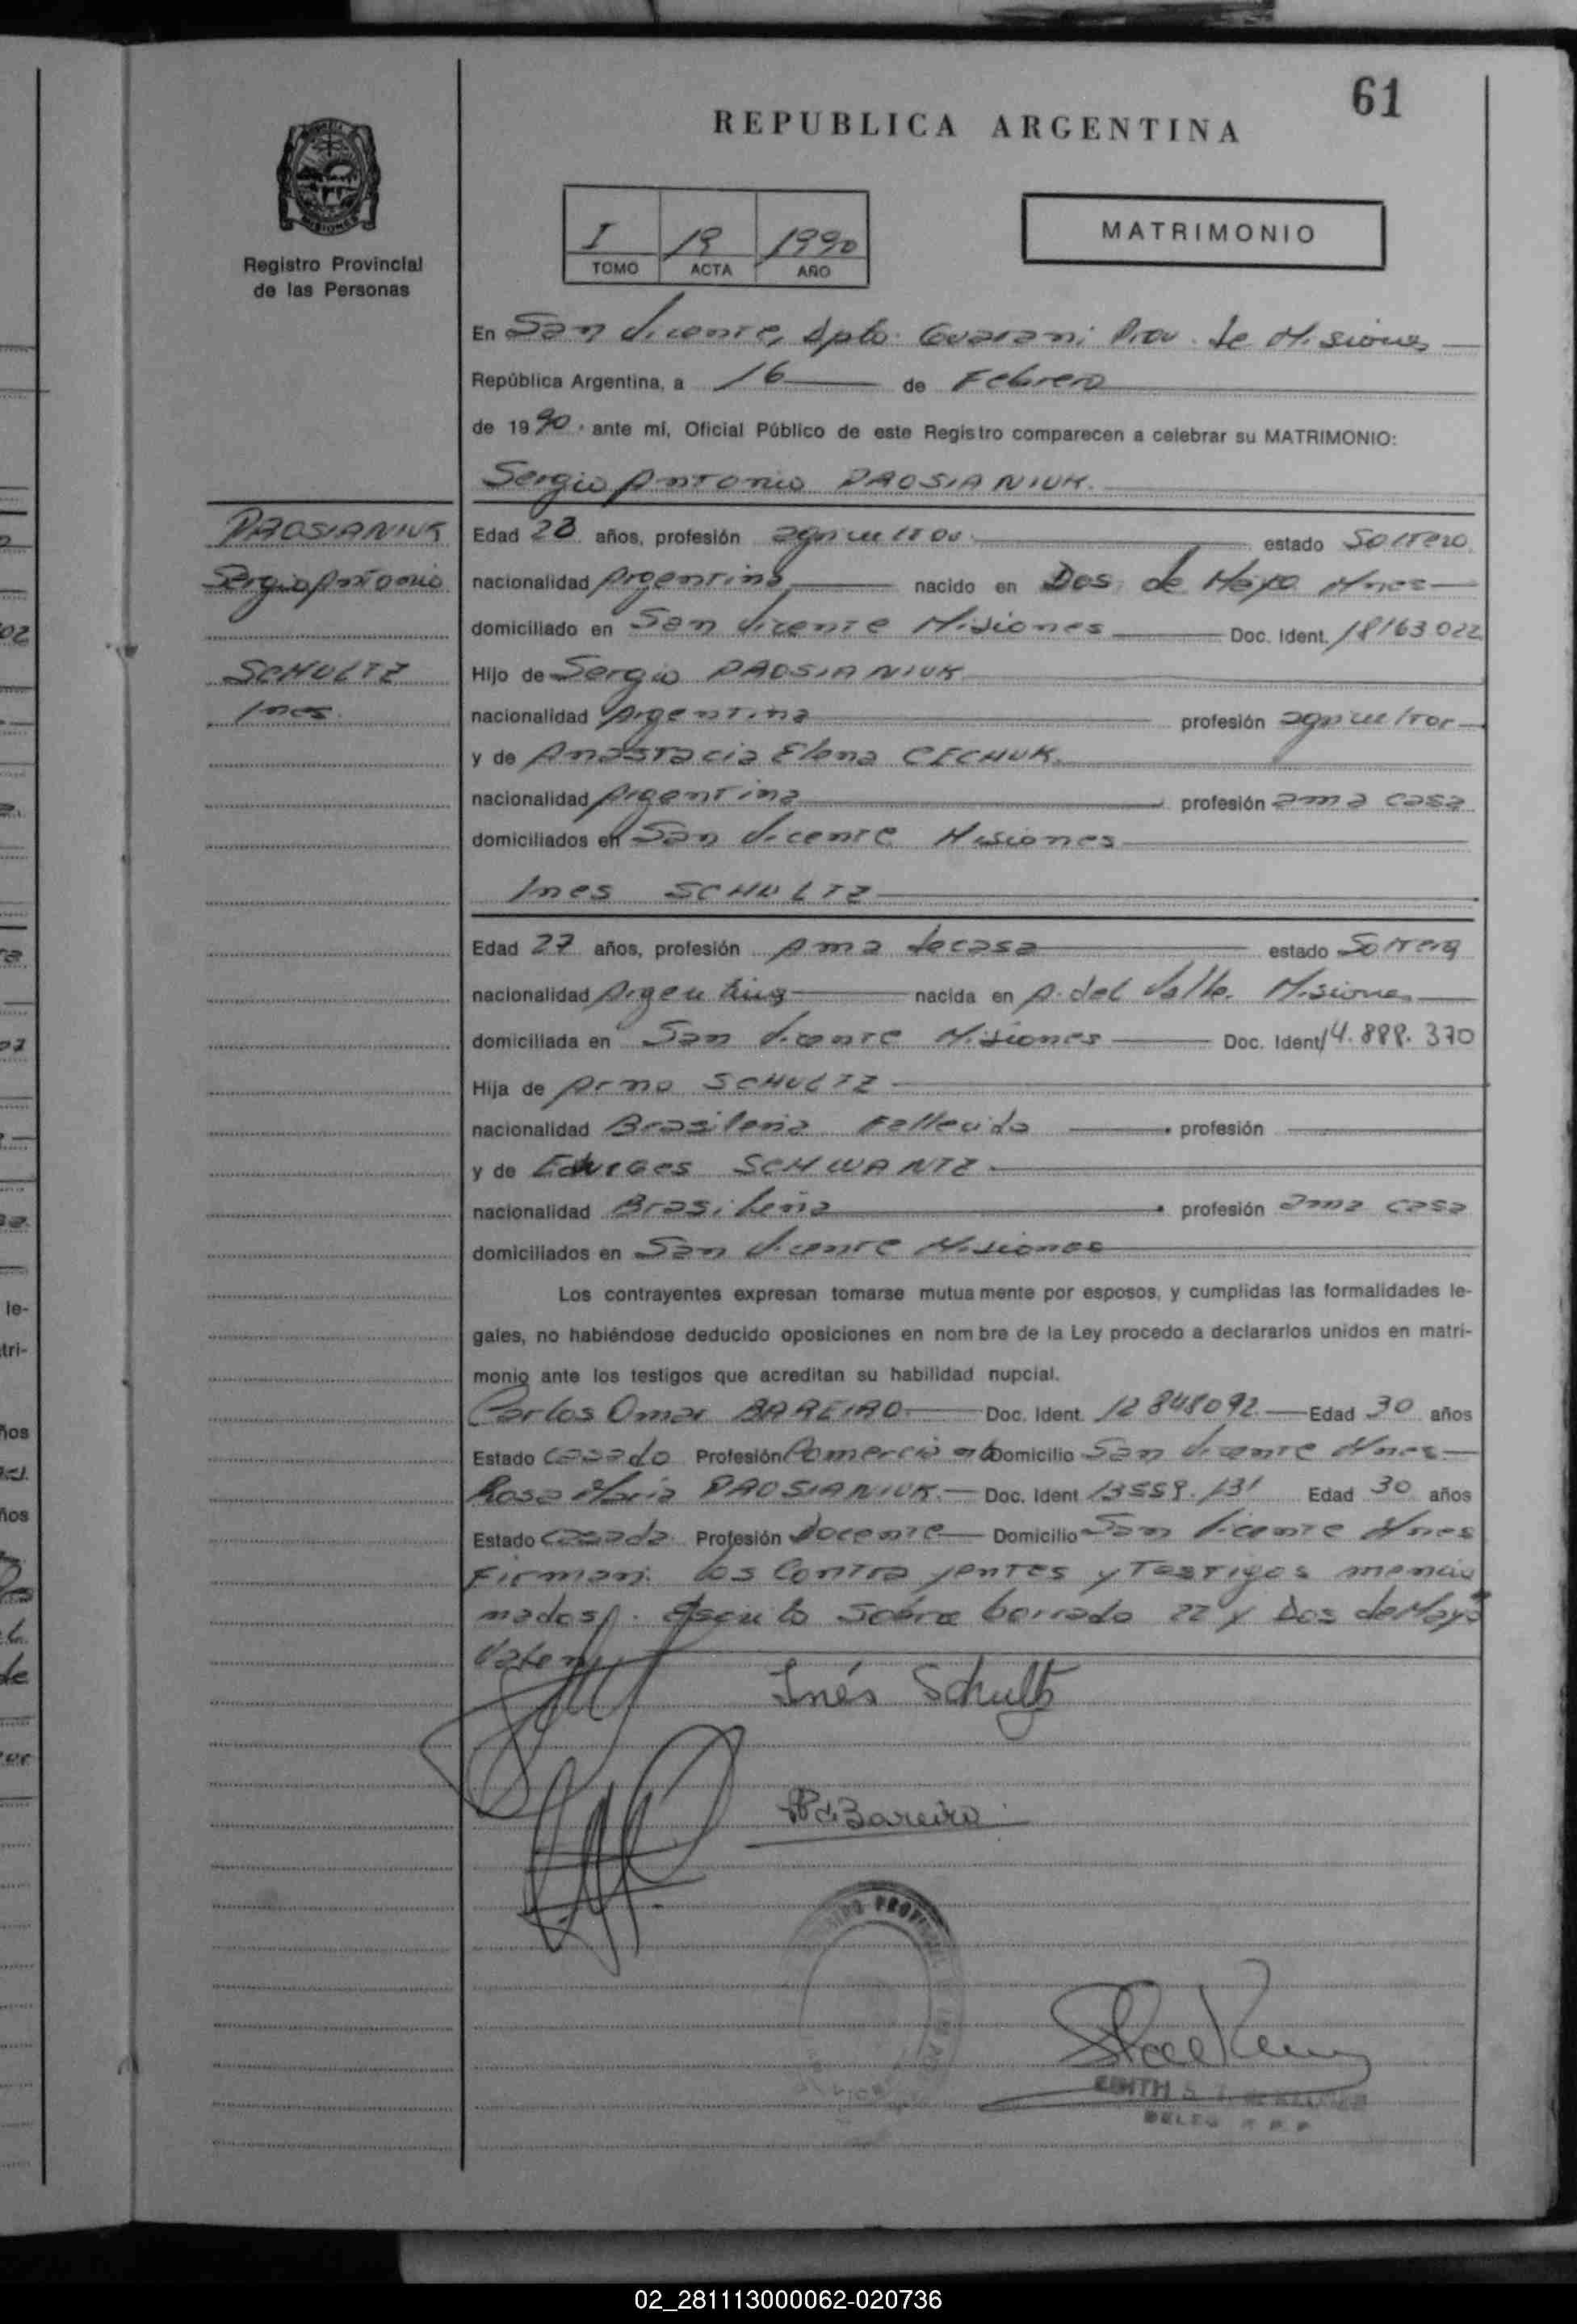 61
REPUBLICA ARGENTINA
MISIONES
Registro Provincial
de las Personas
I 19 1990
TOMO ACTA AÑO
MATRIMONIO
En San Vicente, Dpto. Guarani Prov. de Misiones
República Argentina, a 16 de Febrero
de 1990. ante mí, Oficial Público de este Registro comparecen a celebrar su MATRIMONIO:
Sergio Antonio PROSIANIUK.
PROSIANIUK
Sergio Antonio
SCHULTZ
Ines.
Edad 23 años, profesión agricultor estado Soltero
nacionalidad Argentina nacido en Dos de Mayo Mnes
domiciliado en San Vicente Misiones Doc. Ident. 18163022
Hijo de Sergio PROSIANIUK
nacionalidad Argentina profesión agricultor
y de Anastacia Elena CECHUK
nacionalidad Argentina profesión ama casa
domiciliados en San Vicente Misiones
Ines SCHULTZ
Edad 27 años, profesión Ama de casa estado Soltera
nacionalidad Argentina nacida en A. del Valle Misiones
domiciliada en San Vicente Misiones Doc. Ident 14.888.370
Hija de Arno SCHULTZ
nacionalidad Brasileña Fallecido profesión
y de Eduvges SCHWANTZ
nacionalidad Brasileña profesión ama casa
domiciliados en San Vicente Misiones
Los contrayentes expresan tomarse mutuamente por esposos, y cumplidas las formalidades le-
gales, no habiéndose deducido oposiciones en nombre de la Ley procedo a declararlos unidos en matri-
monio ante los testigos que acreditan su habilidad nupcial.
Carlos Omar BAREIRO Doc. Ident. 12848092 Edad 30 años
Estado Casado Profesión Domicilio San Vicente Mnes
Rosa Maria PROSIANIUK. Doc. Ident 13559.131 Edad 30 años
Estado Casada Profesión Docente Domicilio San Vicente Mnes
Firman: los Contrayentes y Testigos mencio
nados. Escrito Sobre borrado 22 y Dos de Mayo
Valen
Inés Schultz
de Bareiro
PROVINCIAL
EDITH
02_281113000062-020736